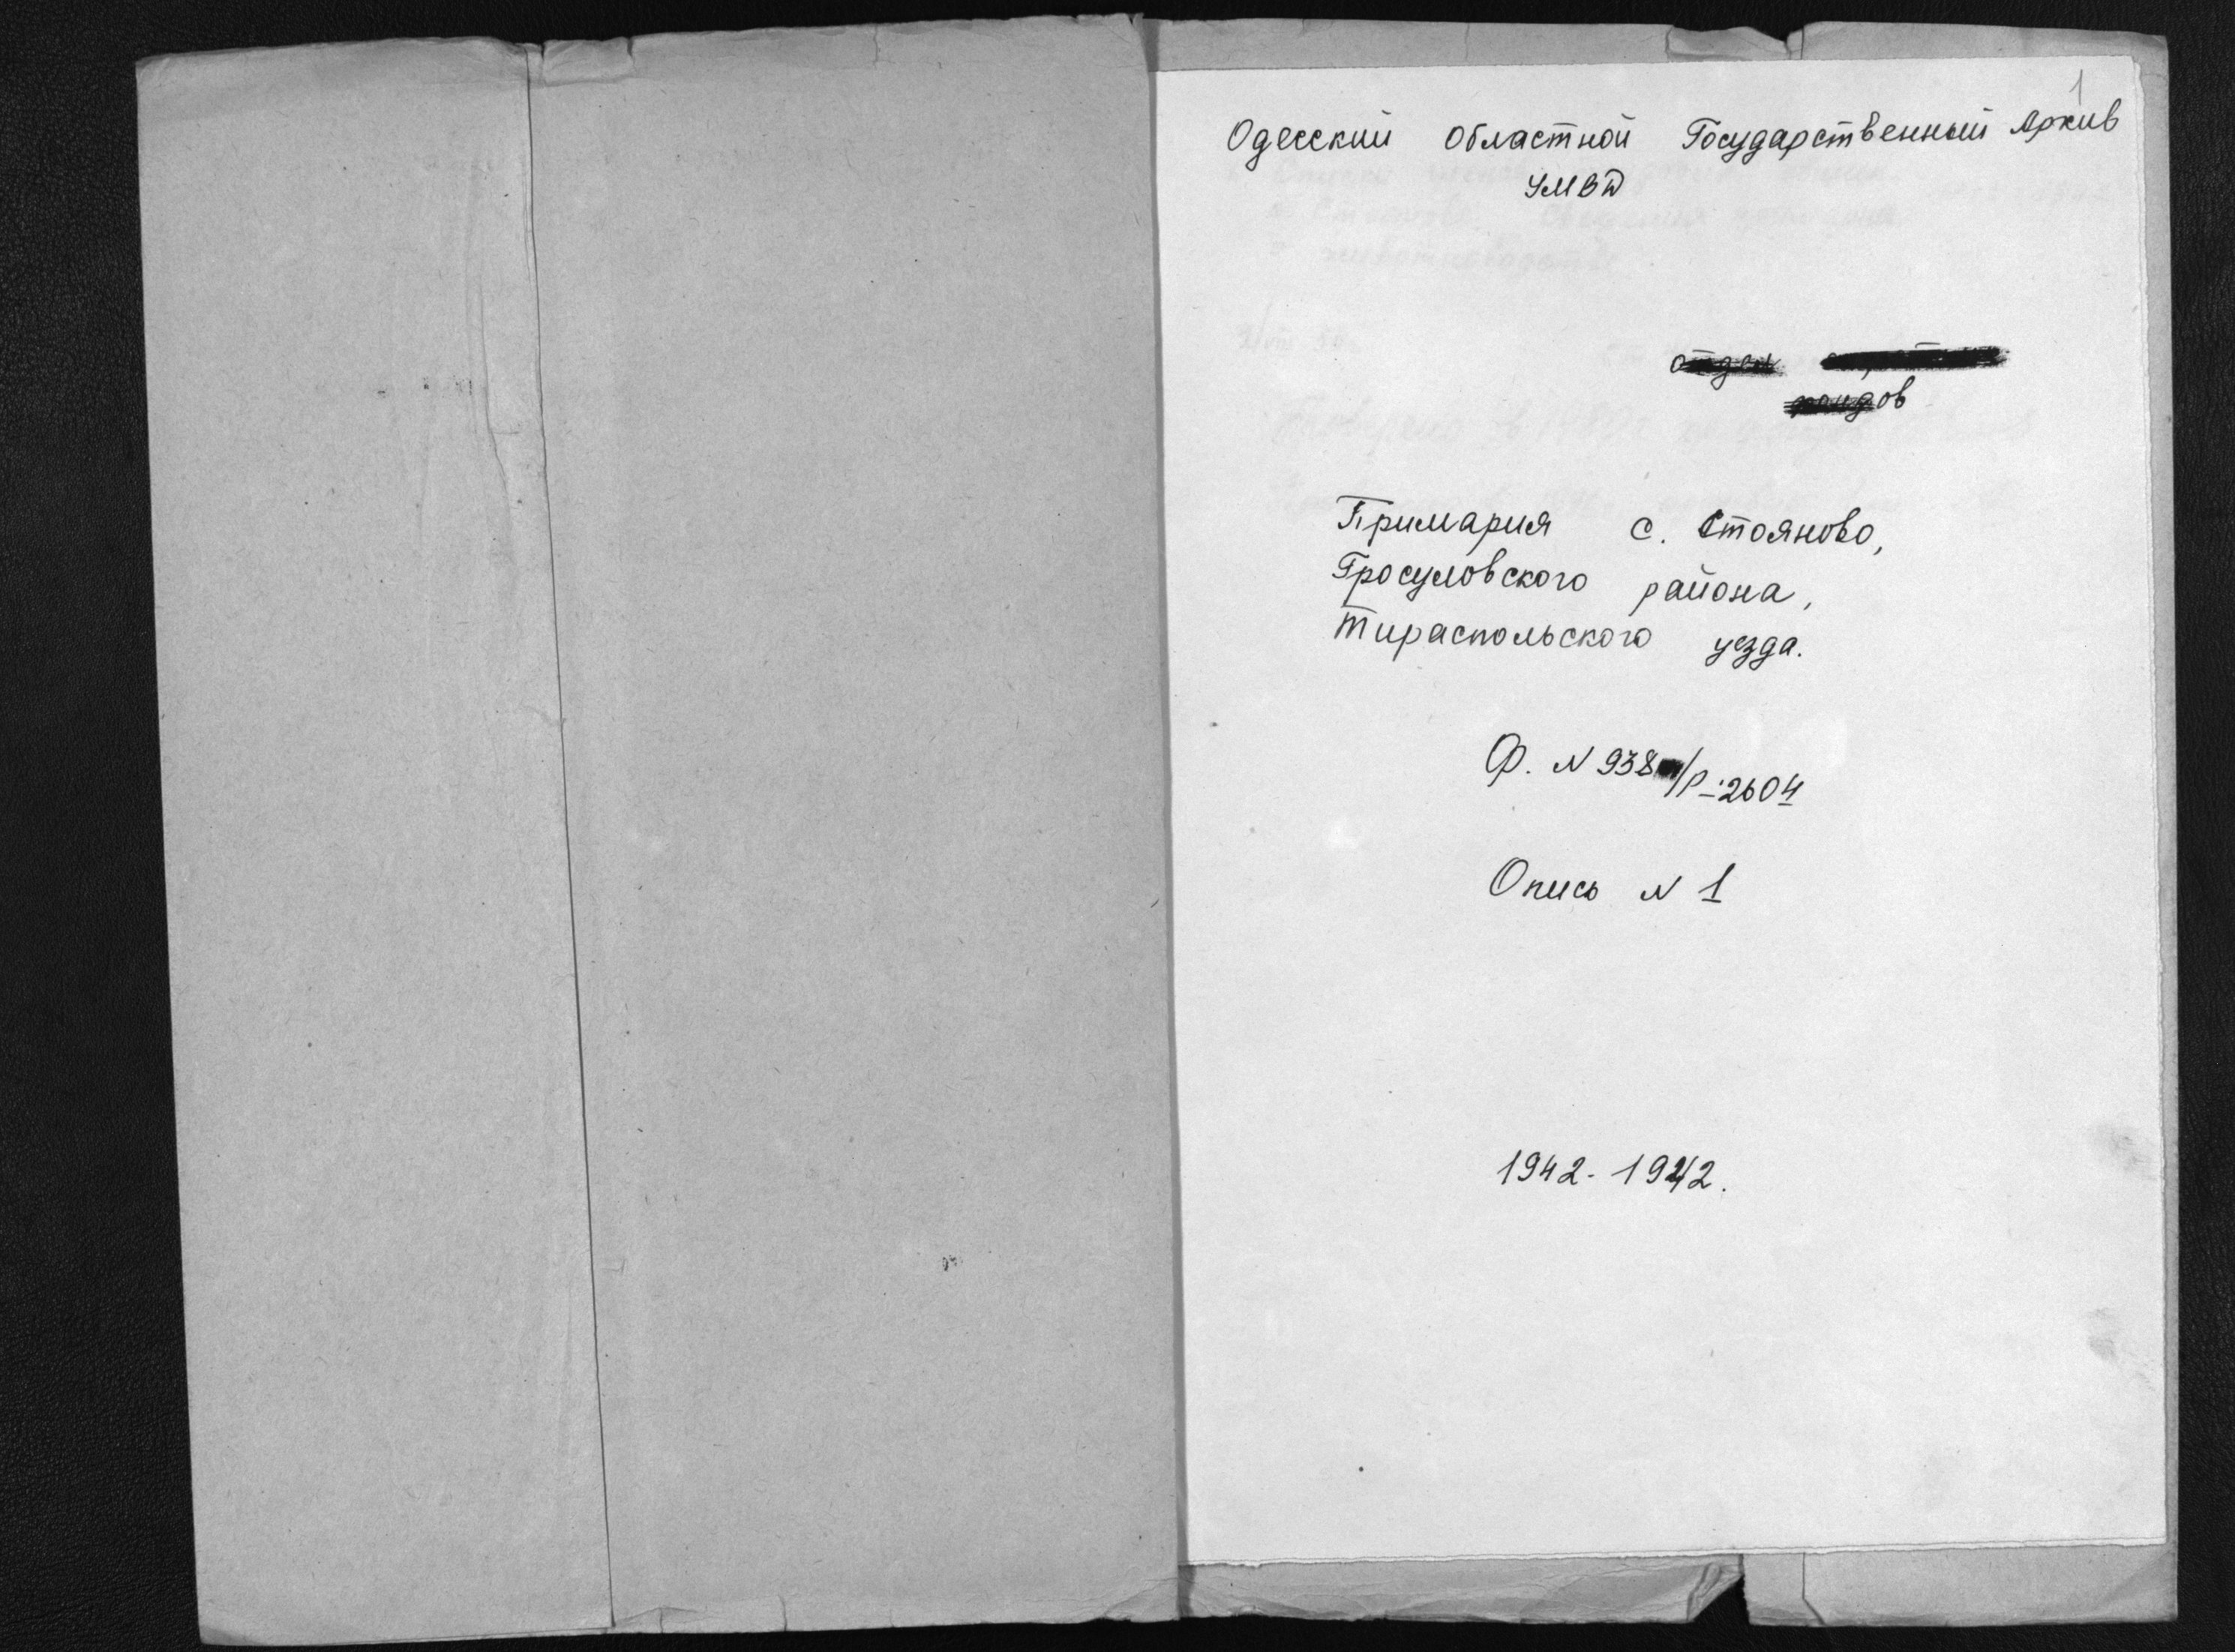 1
Одесский Областной Государственный Архив
УМВД
отдел
фондов
Примария с. Стояново,
Гросуловского района,
Тираспольского уезда.
Ф. N 938 /Р-2604
Опись N 1
1942-1942.